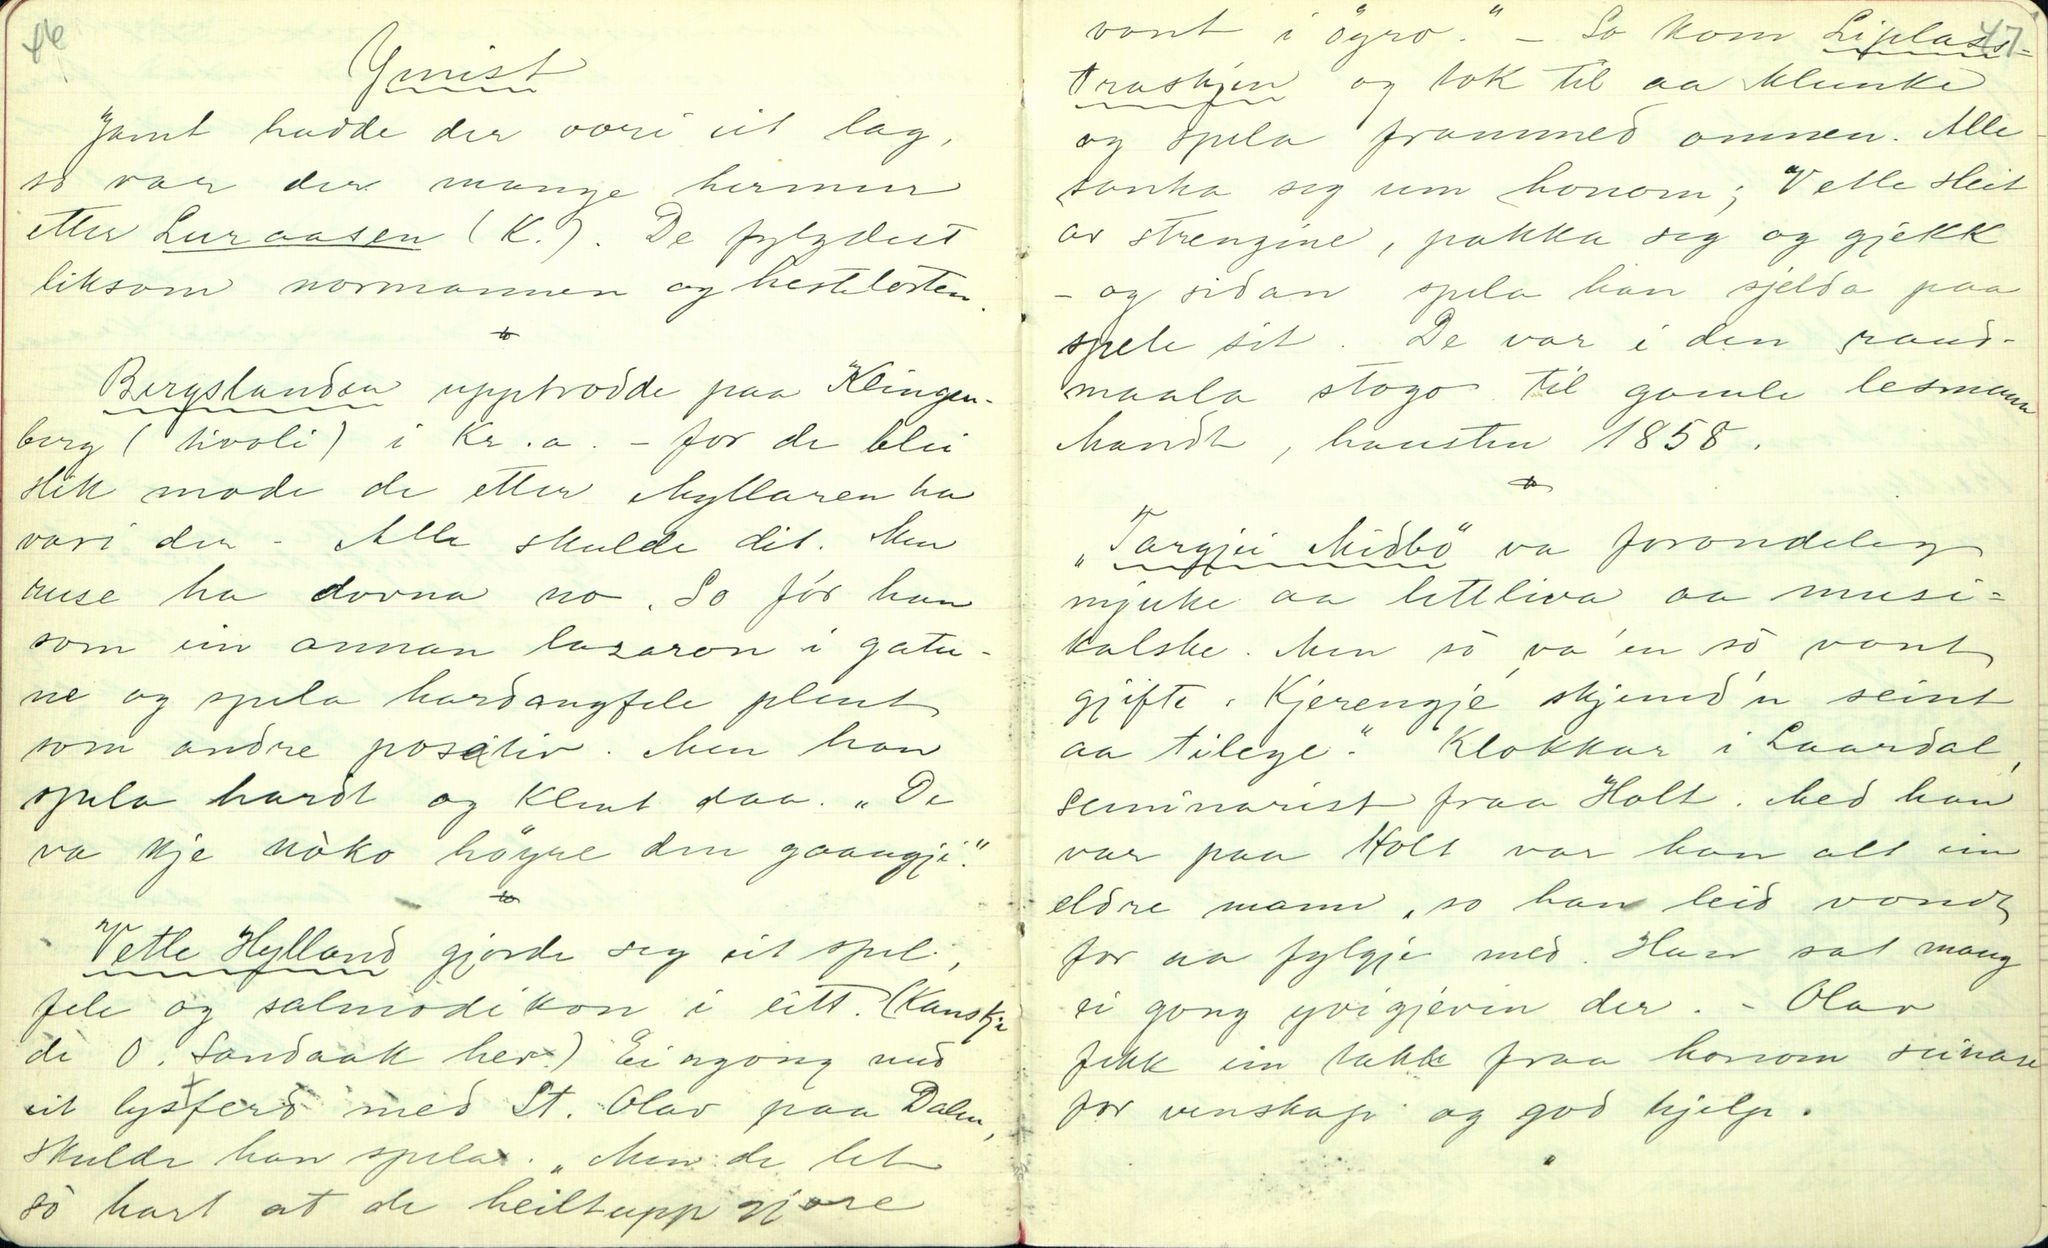 46
Ymist
Jamt hadde der vori eit lag,
so var der mange hermur
etter Luraasen (K.). De fylgdest
liksom normannen og hestelorten.
Bergslandsen upptrodde paa Klingen-
berg (tivoli) i Kr.a. - for de blei
slik mode de etter Myllaren ha
vori der - Alle skulde dit. Men
ruse ha dovna no. So fór han
som ein annan lazaron i gatu-
ne og spela hardangfele plent
som andre posativ. Men han
spela hardt og klent daa. "De
va kje nòko høgre den gaangji."
Vetle Hylland gjorde seg eit spel,
fele og salmodikon i eitt. (Kanskje
de O. Sandaak her.) Ein gong med
eit lystferd med St. Olav paa Dalen,
skulde han spela. "Men de let
sò hart at de heiltupp gjore
47
vont i øyro." - So kom Liplass-
traskjen og tok til aa klunke
og spela frammed omnen. Alle
sanka seg um honom; Vetle sleit
av strengine, pakka seg og gjekk
- og sidan spela han sjelda paa
spele sit. De var i den raud-
maala stogo til gamle lesmann
Mandt, hausten 1858.
"Targjei Midbö" va forondeleg
mjuke aa lettliva aa musi-
kalske. Men sò va 'en sò vont
gjifte. Kjerengje skjemd'n seint
aa tilege." Klokkar i Laardal,
seminarist fraa Holt. Med han
var paa Holt var han alt ein
eldre mann, so han leid vondt
for aa fylgje med. Han sat mang
ei gong yvigjevin der. - Olav
fekk ein takk fraa honom seinare
for venskap og god hjelp.